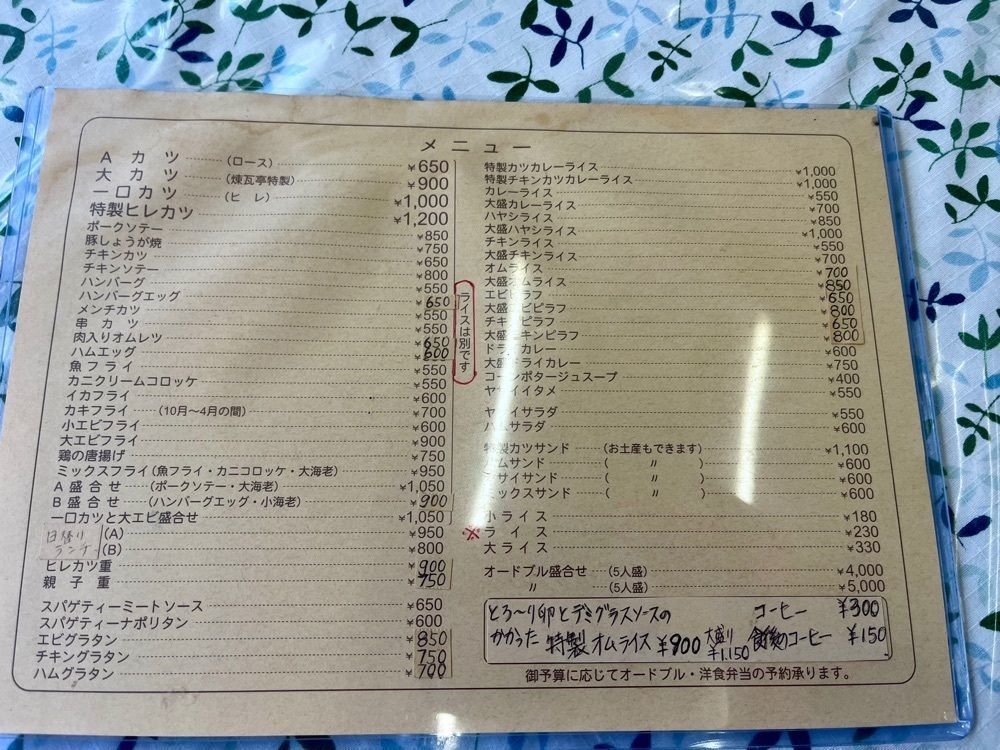 メニュー
A カツ (ロース) ¥650
大 カツ (煉瓦亭特製) ¥900
一口カツ (ヒレ) ¥1,000
特製ヒレカツ ¥1,200
ポークソテー ¥850
豚しょうが焼 ¥750
チキンカツ ¥650
チキンソテー ¥800
ハンバーグ ¥550
ハンバーグエッグ ¥650
メンチカツ ¥550
串カツ ¥550
肉入りオムレツ ¥650
ハムエッグ ¥600
魚フライ ¥550
カニクリームコロッケ ¥550
イカフライ ¥600
カキフライ (10月〜4月の間) ¥700
小エビフライ ¥600
大エビフライ ¥900
鶏の唐揚げ ¥750
ミックスフライ (魚フライ・カニコロッケ・大海老) ¥950
A 盛合せ (ポークソテー・大海老) ¥1,050
B 盛合せ (ハンバーグエッグ・小海老) ¥900
一口カツと大エビ盛合せ ¥1,050
日替り ランチ
(A) ¥950
(B) ¥800
ヒレカツ重 ¥900
親子重 ¥750
スパゲティーミートソース ¥650
スパゲティーナポリタン ¥600
エビグラタン ¥850
チキングラタン ¥750
ハムグラタン ¥700
ライスは別です
特製カツカレーライス ¥1,000
特製チキンカツカレーライス ¥1,000
カレーライス ¥550
大盛カレーライス ¥700
ハヤシライス ¥850
大盛ハヤシライス ¥1,000
チキンライス ¥550
大盛チキンライス ¥700
オムライス ¥700
大盛オムライス ¥850
エビピラフ ¥650
大盛エビピラフ ¥800
チキンピラフ ¥650
大盛チキンピラフ ¥800
ドライカレー ¥600
大盛ドライカレー ¥750
コーンポタージュスープ ¥400
ヤサイイタメ ¥550
ヤサイサラダ ¥550
ハムサラダ ¥600
特製カツサンド (お土産もできます) ¥1,100
ハムサンド ( 〃 ) ¥600
ヤサイサンド ( 〃 ) ¥600
ミックスサンド ( 〃 ) ¥600
小ライス ¥180
※ ライス ¥230
大ライス ¥330
オードブル盛合せ (5人盛) ¥4,000
〃 (5人盛) ¥5,000
とろ〜り卵とデミグラスソースの コーヒー ¥300
かかった 特製 オムライス ¥900 大盛り ¥1,150 食後のコーヒー ¥150
御予算に応じてオードブル・洋食弁当の予約承ります。